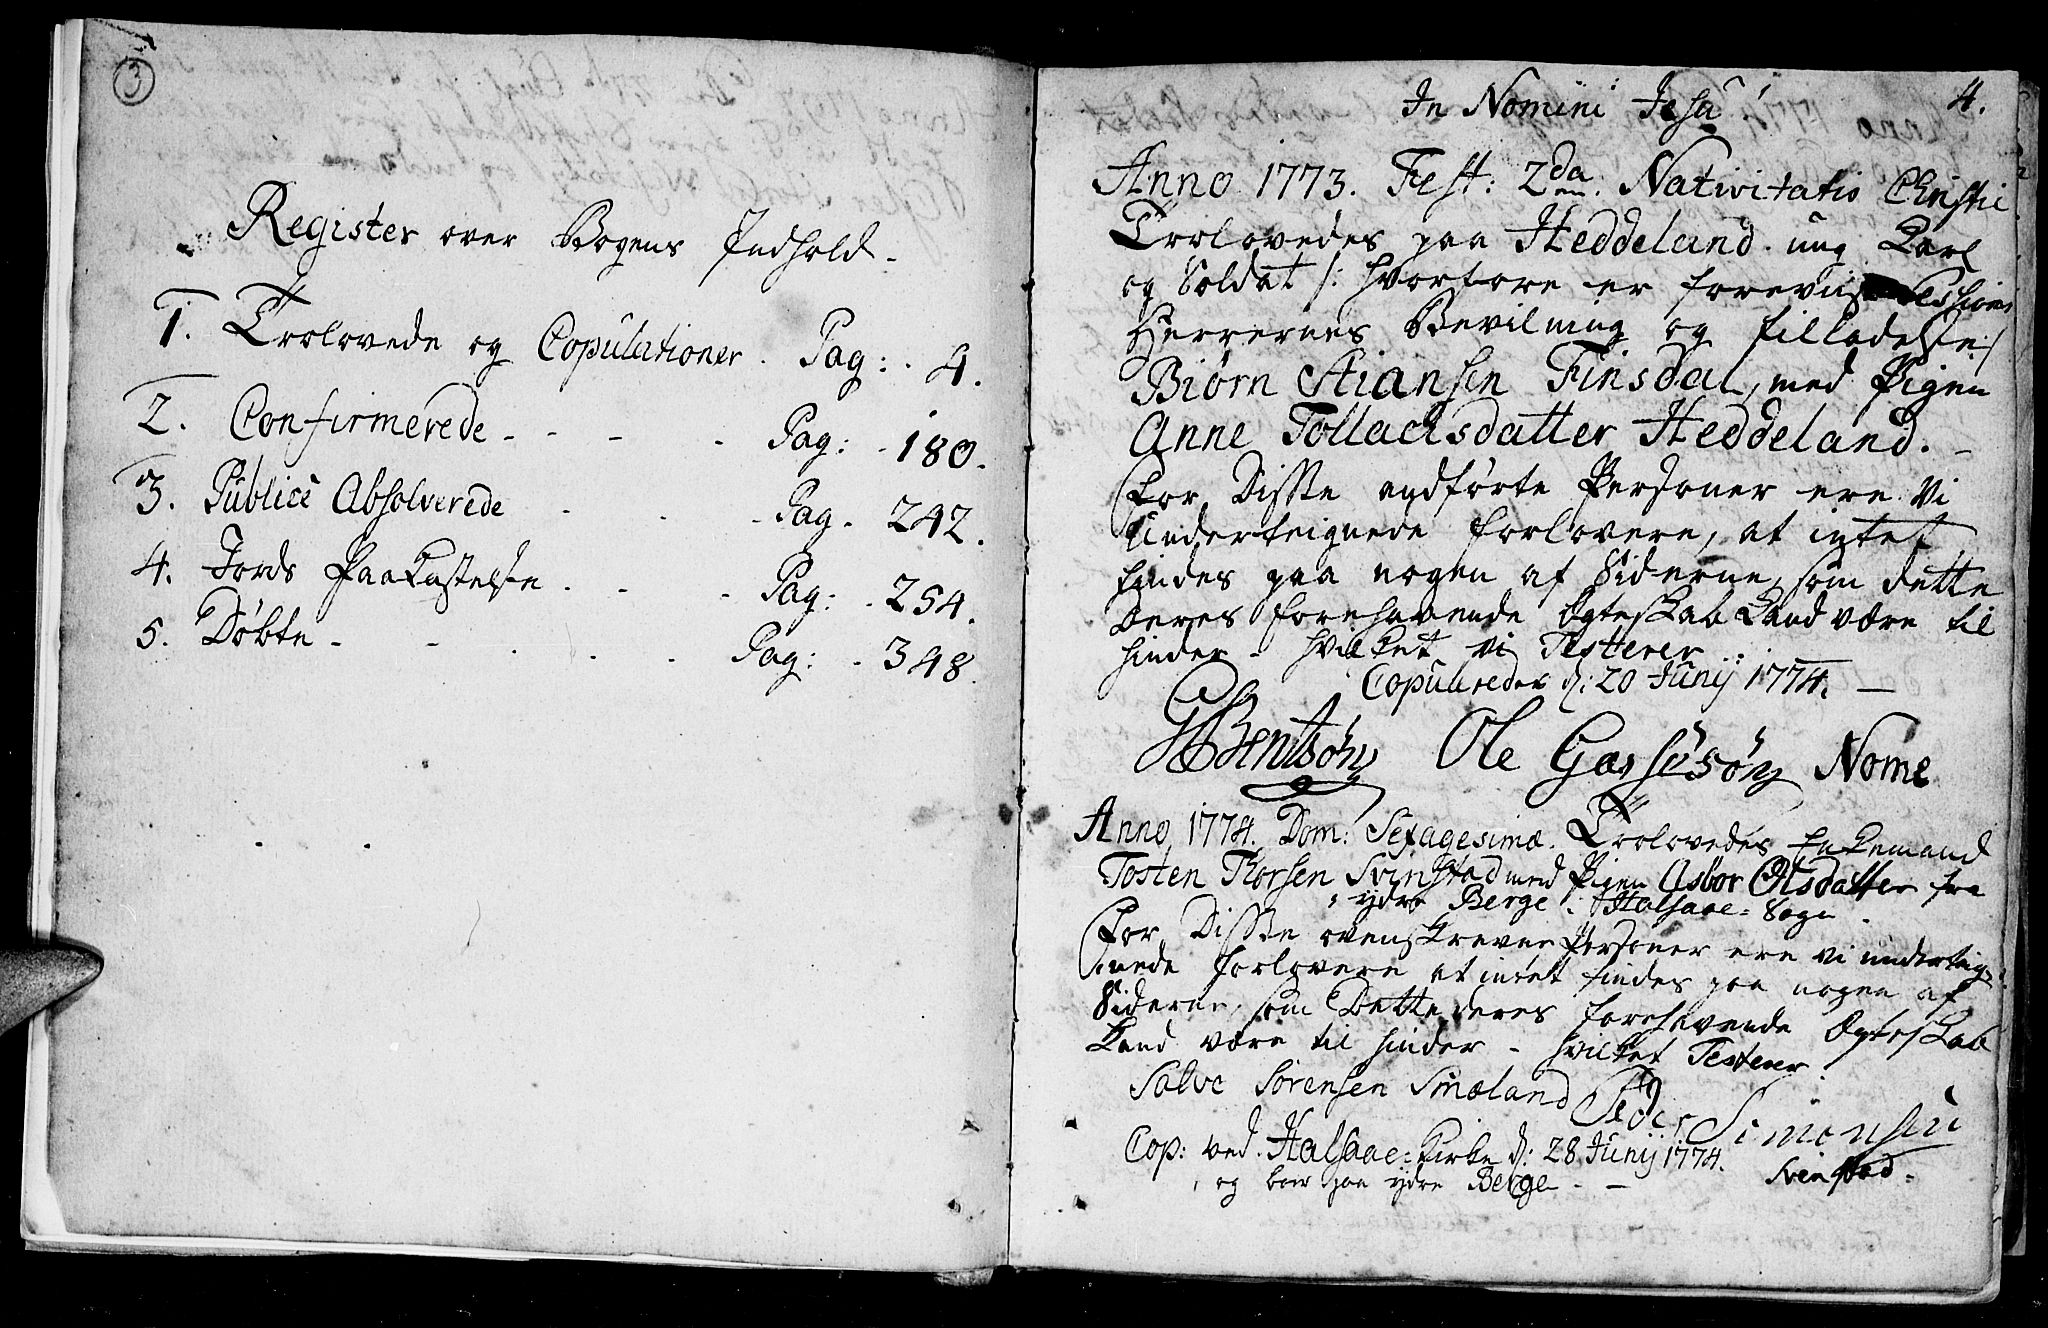 3
Register over Bogens Indhold.
1. Troolovede og Copulationer. Pag: 4.
2. Confirmerede - - - - Pag: 180.
3. Publicè Absolverede - - - Pag. 242.
4. Jords Paakastelse . . - Pag: 254.
5. Döbte - - . . . Pag: 348.
In Nomini Jesu! 4.
Anno 1773. Fest: 2da Nativitatis Christi
Troolovedes paa Heddeland ung Karl
og Soldat /: hvorfore er forevist Sessions
Herrernes Bevilning og tilladelse :/
Biørn Stiansen Finsdal, med Pigen
Anne Tollachsdatter Heddeland. -
For Disse andførte Personer ere Vi
Underteignede Forlovere, at intet
findes paa nogen af Siderne, som dette
Deres forehavende Ægteskab kand være til
hinder - hvilket vi Testerer.
Copulereder d: 20 Junij 1774. -
GBentsøn Ole Gassusøn Nome
Anno 1774. Dom: Sexagesimæ. Troolovedes Enkemand
Tosten Thorsen Svinstad med Pigen Asbor Olsdatter fra
ydre Berge i Halsaae = Sogn -
For Disse ovenskrevne Personer ere vi underteig=
nede Forlovere at intet findes paa nogen af
Siderne, som Dette deres forehavende Ægteskab
kand være til hinder - hvilket Testerer.
Salve Sörensen Smæland Peder Simonsen
Cop: ved Halsaae = Kirke d: 28 Junij 1774. Svinstad.
og boer paa ydre Berge - -